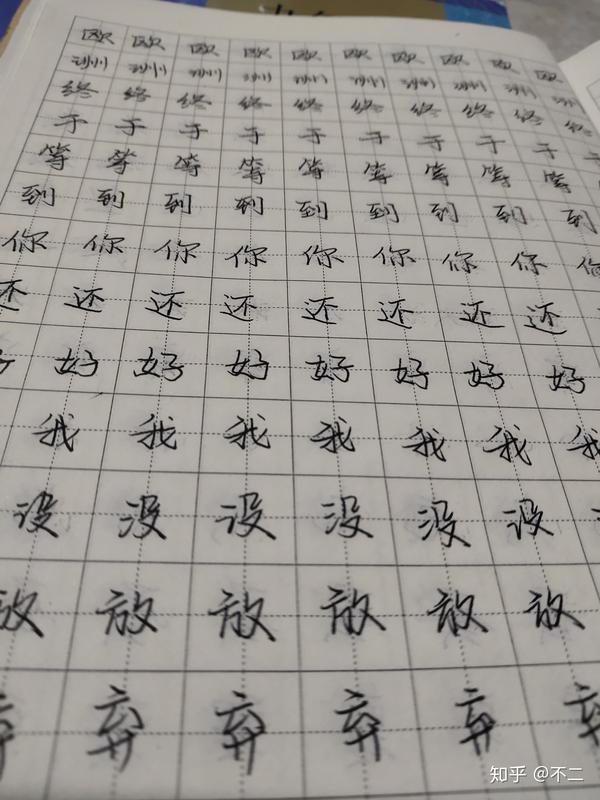 欧欧欧欧欧欧欧欧欧欧
洲洲洲洲洲洲洲洲洲洲
终终终终终终终终终终
于于于于于于于于于于
等等等等等等等等等
到到到到到到到到到
你你你你你你你你你
还还还还还还还还
好好好好好好好好
我我我我我我我
没没没没没没
放放放放放放
弃弃弃弃弃弃
知乎 @不二